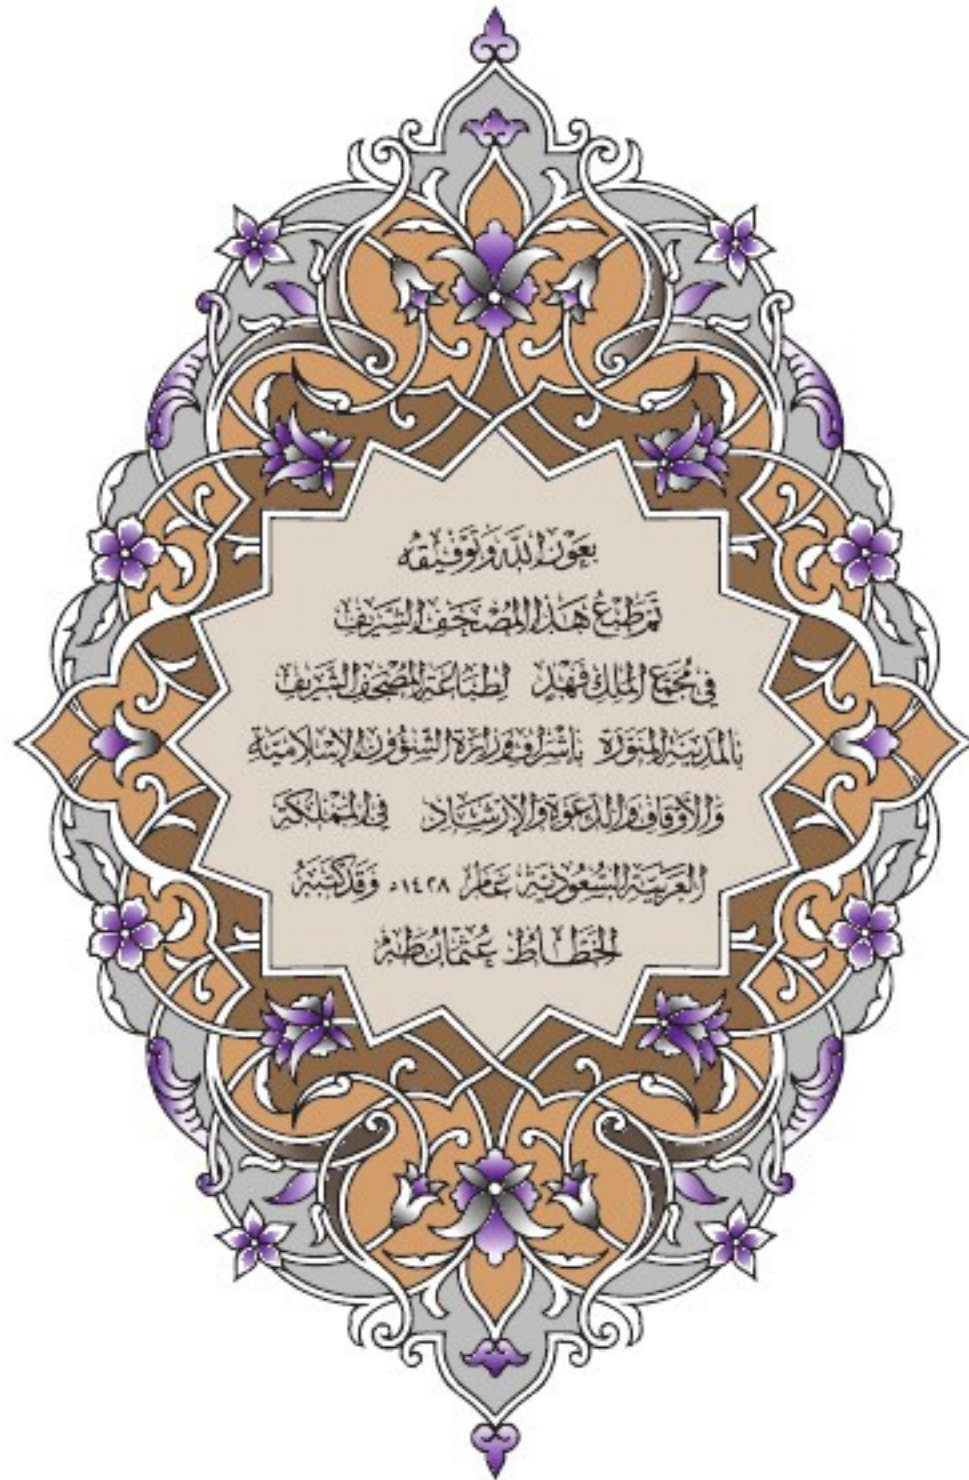 بِعَوْنِ اللَّهِ وَتَوْفِيقِهِ
تَمَّ طَبْعُ هَذَا الْمُصْحَفِ الشَّرِيفِ
فِي مُجَمَّعِ الْمَلِكِ فَهْدٍ لِطِبَاعَةِ الْمُصْحَفِ الشَّرِيفِ
بِالْمَدِينَةِ الْمُنَوَّرَةِ بِإِشْرَافِ وِزَارَةِ الشُّؤُونِ الْإِسْلَامِيَّةِ
وَالْأَوْقَافِ وَالدَّعْوَةِ وَالْإِرْشَادِ فِي الْمَمْلَكَةِ
الْعَرَبِيَّةِ السُّعُودِيَّةِ عَامَ ١٤٢٨ه وَقَدْ كَتَبَهُ
الْخَطَّاطُ عُثْمَانُ طه